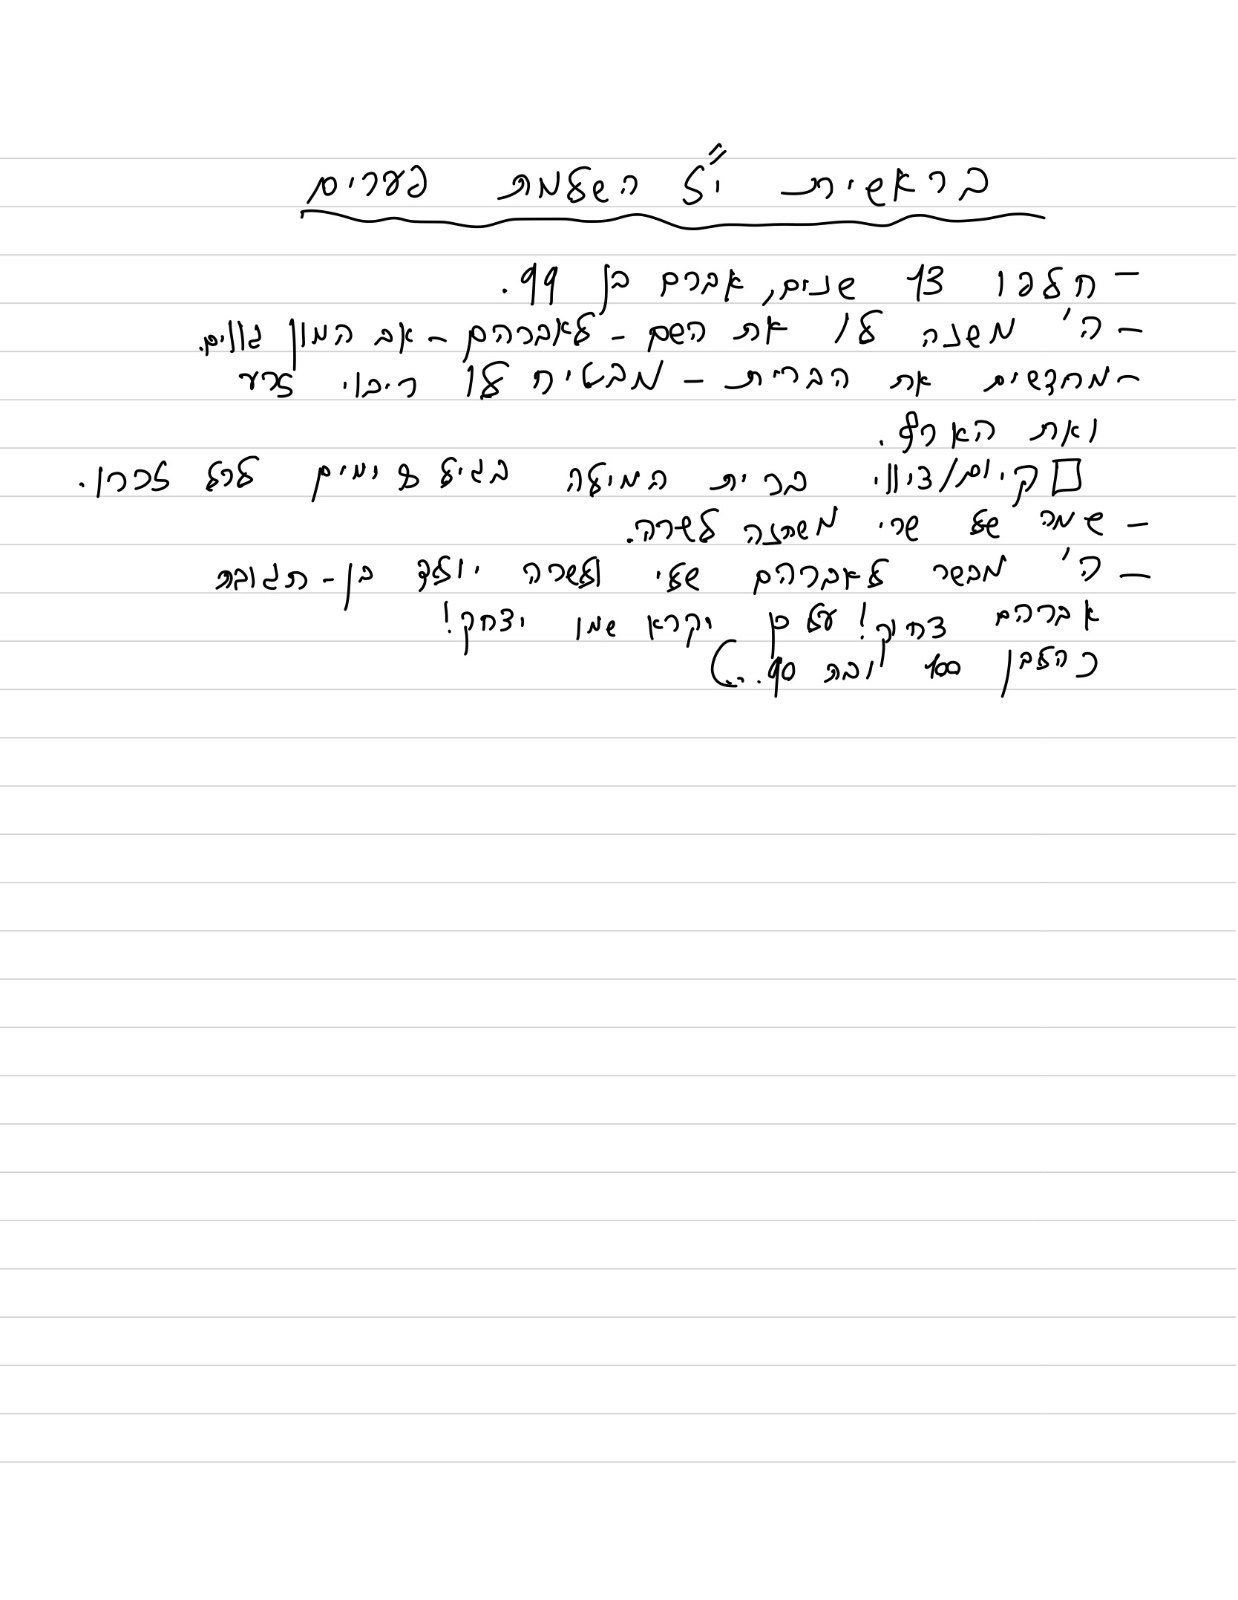 בראשית י"ז השלמת פערים
- חלפו 13 שנים, אברם בן 99.
- ה' משנה לו את השם - לאברהם - אב המון גווים.
- מחדשים את הברית - מבטיח לו ריבוי זרע
ואת הארץ.
קיום/ציווי ברית המילה בגיל 8 ימים לכל זכר
- שמה של שרי משתנה לשרה.
- ה' מבשר לאברהם שלו ולשרה יולד בן - תגובת
אברהם צחוק! על כן יקרא שמו יצחק!
(הלבן 100 ובת 90...)